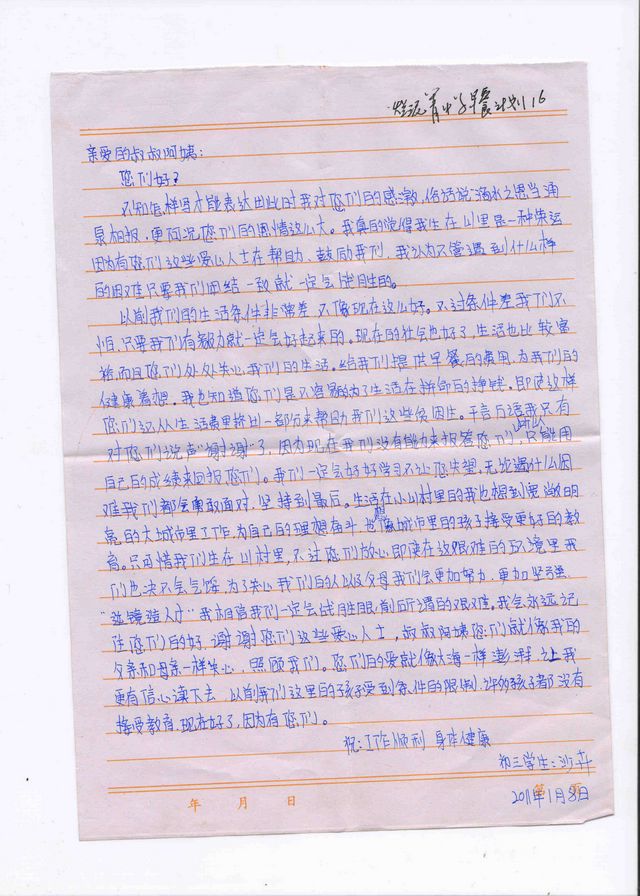 烂泥箐中学早餐计划16
亲爱的叔叔阿姨：
您们好？
不知怎样写才能表达出此时我对您们的感激，俗话说"滴水之恩当涌
泉相报，更何况您们的恩情这么大。我真的觉得我生在山里是一种幸运
因为有您们这些爱心人士在帮助、鼓励我们，我认为不管遇到什么样
的困难只要我们团结一致就一定会战胜的。
以前我们的生活条件非常差，不像现在这么好。不过条件差我们不
怕，只要我们有毅力就一定会好起来的。现在的社会也好了，生活也比较富
裕，而且您们处处关心我们的生活。给我们提供早餐的费用，为我们的
健康着想。我也知道您们是不容易的为了生活在拼命的挣钱。即使这样
您们还从生活费里挤出一部分来帮助我们这些贫困生。千言万语我只有
对您们说声"谢谢"了，因为现在我们没有能力来报答您们，所以只能用
自己的成绩来回报您们。我们一定会好好学习不让您失望。无论遇什么困
难我们都会勇敢面对，坚持到最后。生活在小山村里的我也想到宽敞明
亮的大城市里工作，为自己的理想奋斗，也想像城市里的孩子接受更好的教
育。只可惜我们生在山村里，不过您们放心即使在这艰难的环境里我
们也决不会气馁，为了关心我们的人以及父母我们会更加努力，更加坚强
我相信我们一定会战胜眼前所遇的艰难，我会永远记
住您们的好，谢谢您们这些爱心人士，叔叔阿姨您们就像我的
父亲和母亲一样关心，照顾我们。您们的爱就像大海一样澎湃让我
更有信心读下去，以前我们这里的孩子受到条件的限制许多孩子都没有
接受教育，现在好了，因为有您们。
祝：工作顺利 身体健康
初三学生：沙卉
年 月 日 第 页
2011年1月8日